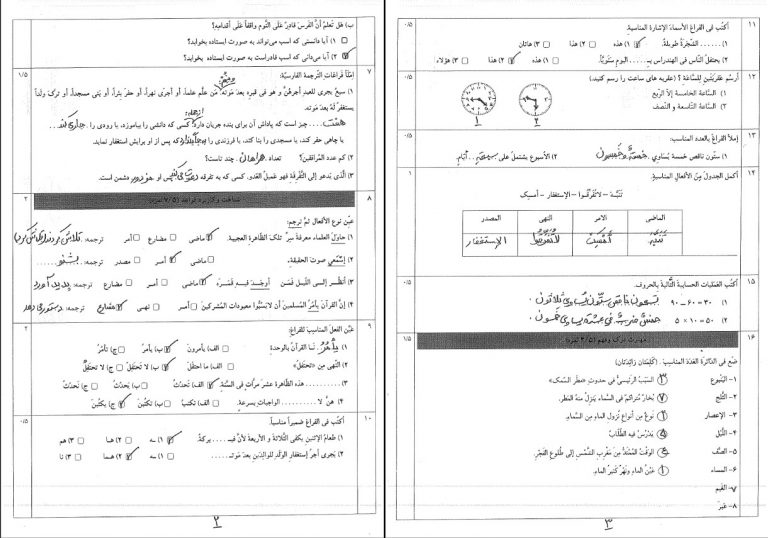 ب) هَل تَعلَمُ أنَّ الفَرَسَ قادِرٌ عَلَی النَّومِ واقفاً عَلَی أقدامِهِ؟
۱) آیا دانستی که اسب می‌تواند به صورت ایستاده بخوابد؟
۲) آیا می‌دانی که اسب قادراست به صورت ایستاده بخوابد؟
۷ إملَأ فَراغاتِ التَّرجمةِ الفارسیَّة: ۱/۵
۱) سبعٌ یجری للعبدِ أجرهُنَّ و هو فی قبرِهِ بعدَ موتِه: مَن علَّمَ علماً، أو أجرَی نَهراً، أو حَفَرَ بئراً، أو بَنَی مسجداً، أو تَرَکَ ولداً
یستغفرُ لَهُ بعدَ مَوتِه.
هفت چیز است که پاداش آن برای بنده جریان دارد؛ کسی که دانشی را بیاموزد، یا رودی را جاری کند
یا چاهی حفر کند، یا مسجدی را بنا کند، یا فرزندی را که پس از او برایش استغفار نماید.
۲) کم عددُ المرافقینَ؟ تعداد همراهان چند تاست؟
۳) الَّذی یَدعو إلی التَّفرقةِ فهو عَمیلُ العَدو. کسی که به تفرقه دشمن است.
۸ ۲
عیّن نوعَ الأفعالِ ثمَّ ترجِم:
۱) حاوَلَ العلماءُ معرفةَ سِرِّ تلکَ الظّاهرةِ العجیبةِ. ماضی مضارع أمر ترجمه:
۲) إستَمِعی صوتَ الحقیقةِ. ماضی أمر مصدر ترجمه: بشنو
۳) أنظُر إلی اللَّیلِ فَمَن أوجَدَ فیهِ قَمَرَه. ماضی مضارع أمر ترجمه: پدید آورد
۴) إنَّ القرآنَ یأمُرُ المسلمینَ أن لایَسُبُّوا معبوداتِ المُشرکینَ أمر نهی مضارع ترجمه: دستور می دهد
۹ عَیّن الفعلَ المناسبَ للفراغِ: ۲
۱) یأمُرُ نـَا القرآنُ بالوحدةِ الف) یأمرونَ ب) یأمرُ ج) تأمُرُ
۲) النَّهی مِن «تحتَفِلُ» الف) ما احتَفَلَ ب) لا تَحتَفِلْ ج) لا یَحتَفِلُ
۳) ............ هذه الظاهرة عشرَ مرّاتٍ فی السَّنةِ. الف) تَحدُثُ ب) یَحدُثُ ج) تَحدُثُ
۴) هنَّ لا .......... الواجباتِ بسرعةٍ. الف) تکتبُ ب) تکتُبنَ ج) یکتُبنَ
۱۰ أکتُب فی الفراغِ ضمیراً مناسباً. ۰/۵
۱) طعامُ الإثنینِ یکفی الثّلاثةَ و الأربعةَ لأنَّ فیـ..... برکةً. ۱) ـه ۲) هما ۳) هم
۲) یَجری أجرُ إستغفارِ الولَدِ للوالِدَینِ بعدَ مَوتـ...... ۱) ـه ۲) هما ۳) نا
۲
۱۱ أکتُب فی الفراغِ الأسماءَ الإشارةِ المناسبةِ. ۰/۵
۱) ...... الشَّجَرَةُ طَویلةٌ. ۱) هذه ۲) هذا ۳) هاتان
۲) یحتفلُ النّاسُ فی الهندوراسِ بـ.... الیومِ سنویّاً. ۱) هذه ۲) هذا ۳) هؤلاء
۱۲ أرسُم عقربَتَینِ للسّاعةِ؟ (عقربه های ساعت را رسم کنید.) ۰/۵
۱) السّاعَةُ الخامسةُ إلّا الرُّبع
۲) السّاعَةُ التّاسعةُ و النّصف
۱ ۲
۱۳ إملأ الفراغَ بالعددِ المناسب: ۰/۵
۱) ستّون ناقص خمسة یُساوی خمسةٌ و خمسون ۲) الأسبوع یشتملُ علی سبعة أیّام.
۱۴ أکمل الجدولَ مِنَ الأفعالِ المناسبةِ. ۱
تَنَبَّهَ – لاتُفَرِّقوا – الإستغفار – أمسِک
الماضی الامر النهی المصدر
أمسک لاتفرقوا الإستغفار
۱۵ أکتُب العَملیّات الحسابیة التّالیة بالحروف. ۰/۵
۱) ۹۰ – ۶۰ = ۳۰ تسعون ناقص ستّون یساوی ثلاثون.
۲) ۵ × ۱۰ = ۵۰ خمس ضرب فی عشرة یساوی خمسون.
۱۶ ۱/۵
ضَع فی الدّائرةِ العَدَدَ المناسبَ. (کلمتان زائدتان)
۱- الینبوع ۳ السَّبَبُ الرَّئیسیُّ فی حدوثِ «مَطَر السَّمَک»
۲- الثَّلج ۷ بُخارٌ متراکمٌ فی السَّماء یَنزِلُ منهُ المَطَر.
۳- الإعصار ۲ نوعٌ مِن أنواعِ نُزولِ الماءِ مِنَ السَّماءِ.
۴- اللَّیل ۵ یَدرُسُ فیهِ الطُّلّابُ
۵- الصَّف ۴ الوَقتُ المُمتَدُّ مِن مَغرِبِ الشَّمسِ إلی طُلوعِ الفَجرِ.
۶- المساء ۱ عَینُ الماءِ ونَهرٌ کثیرُ الماءِ.
۷- الغَیم
۸- عَبَرَ
۳